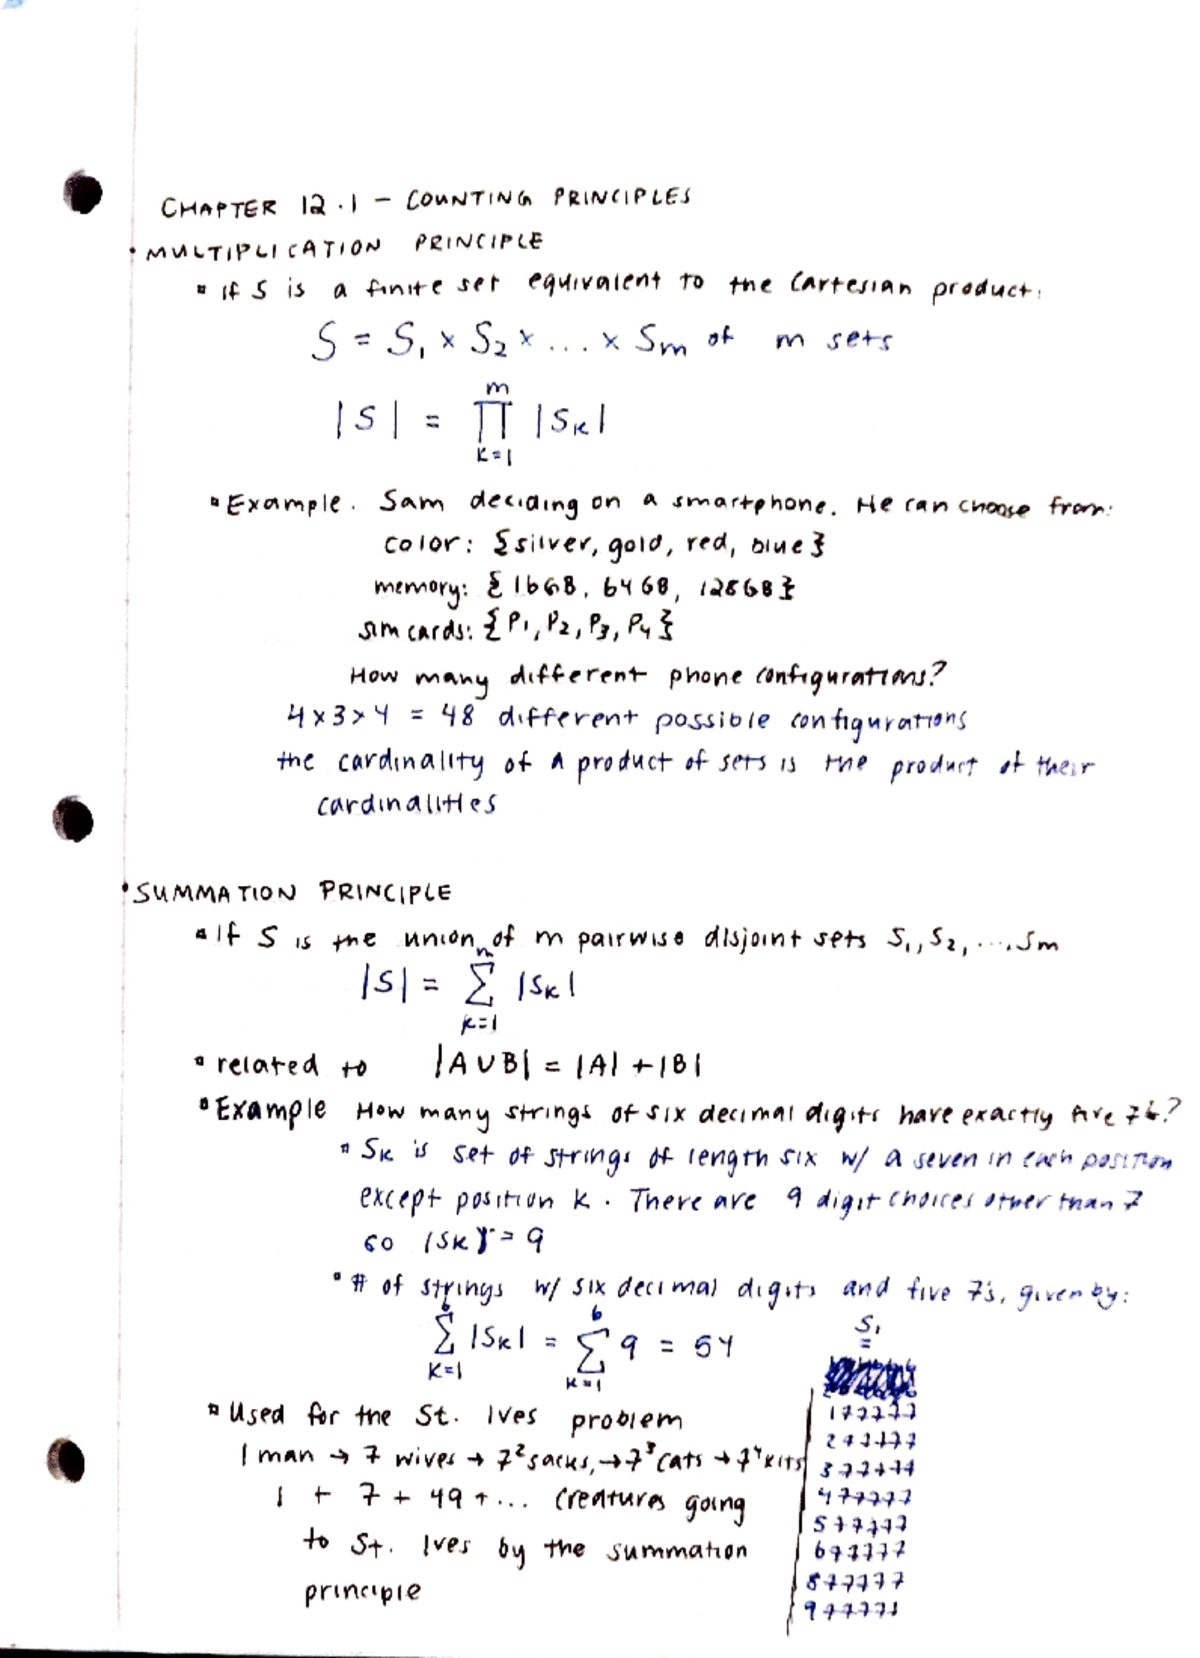 CHAPTER 12.1 – COUNTING PRINCIPLES
• MULTIPLICATION PRINCIPLE
▫ If S is a finite set equivalent to the Cartesian product:
S = S₁ × S₂ × ... × Sm of m sets
m
|S| = ∏ |Sk|
k=1
▫ Example. Sam deciding on a smartphone. He can choose from:
color: {silver, gold, red, blue}
memory: {16GB, 64GB, 128GB}
sim cards: {P₁, P₂, P₃, P₄}
How many different phone configurations?
4×3×4 = 48 different possible configurations
the cardinality of a product of sets is the product of their
cardinalities
• SUMMATION PRINCIPLE
▫ If S is the union of m pairwise disjoint sets S₁, S₂, ..., Sm
m
|S| = Σ |Sk|
k=1
▫ related to |A∪B| = |A| + |B|
▫ Example How many strings of six decimal digits have exactly five 7's?
▫ Sk is set of strings of length six w/ a seven in each position
except position k. There are 9 digit choices other than 7
so |Sk| = 9
▫ # of strings w/ six decimal digits and five 7's, given by:
6 6
Σ |Sk| = Σ 9 = 54
k=1 k=1
▫ Used for the St. Ives problem
1 man → 7 wives → 7² sacks, → 7³ cats → 7⁴ kits
1 + 7 + 49 + ... creatures going
to St. Ives by the summation
principle
S₁
=
177777
277777
377777
477777
577777
677777
877777
977777